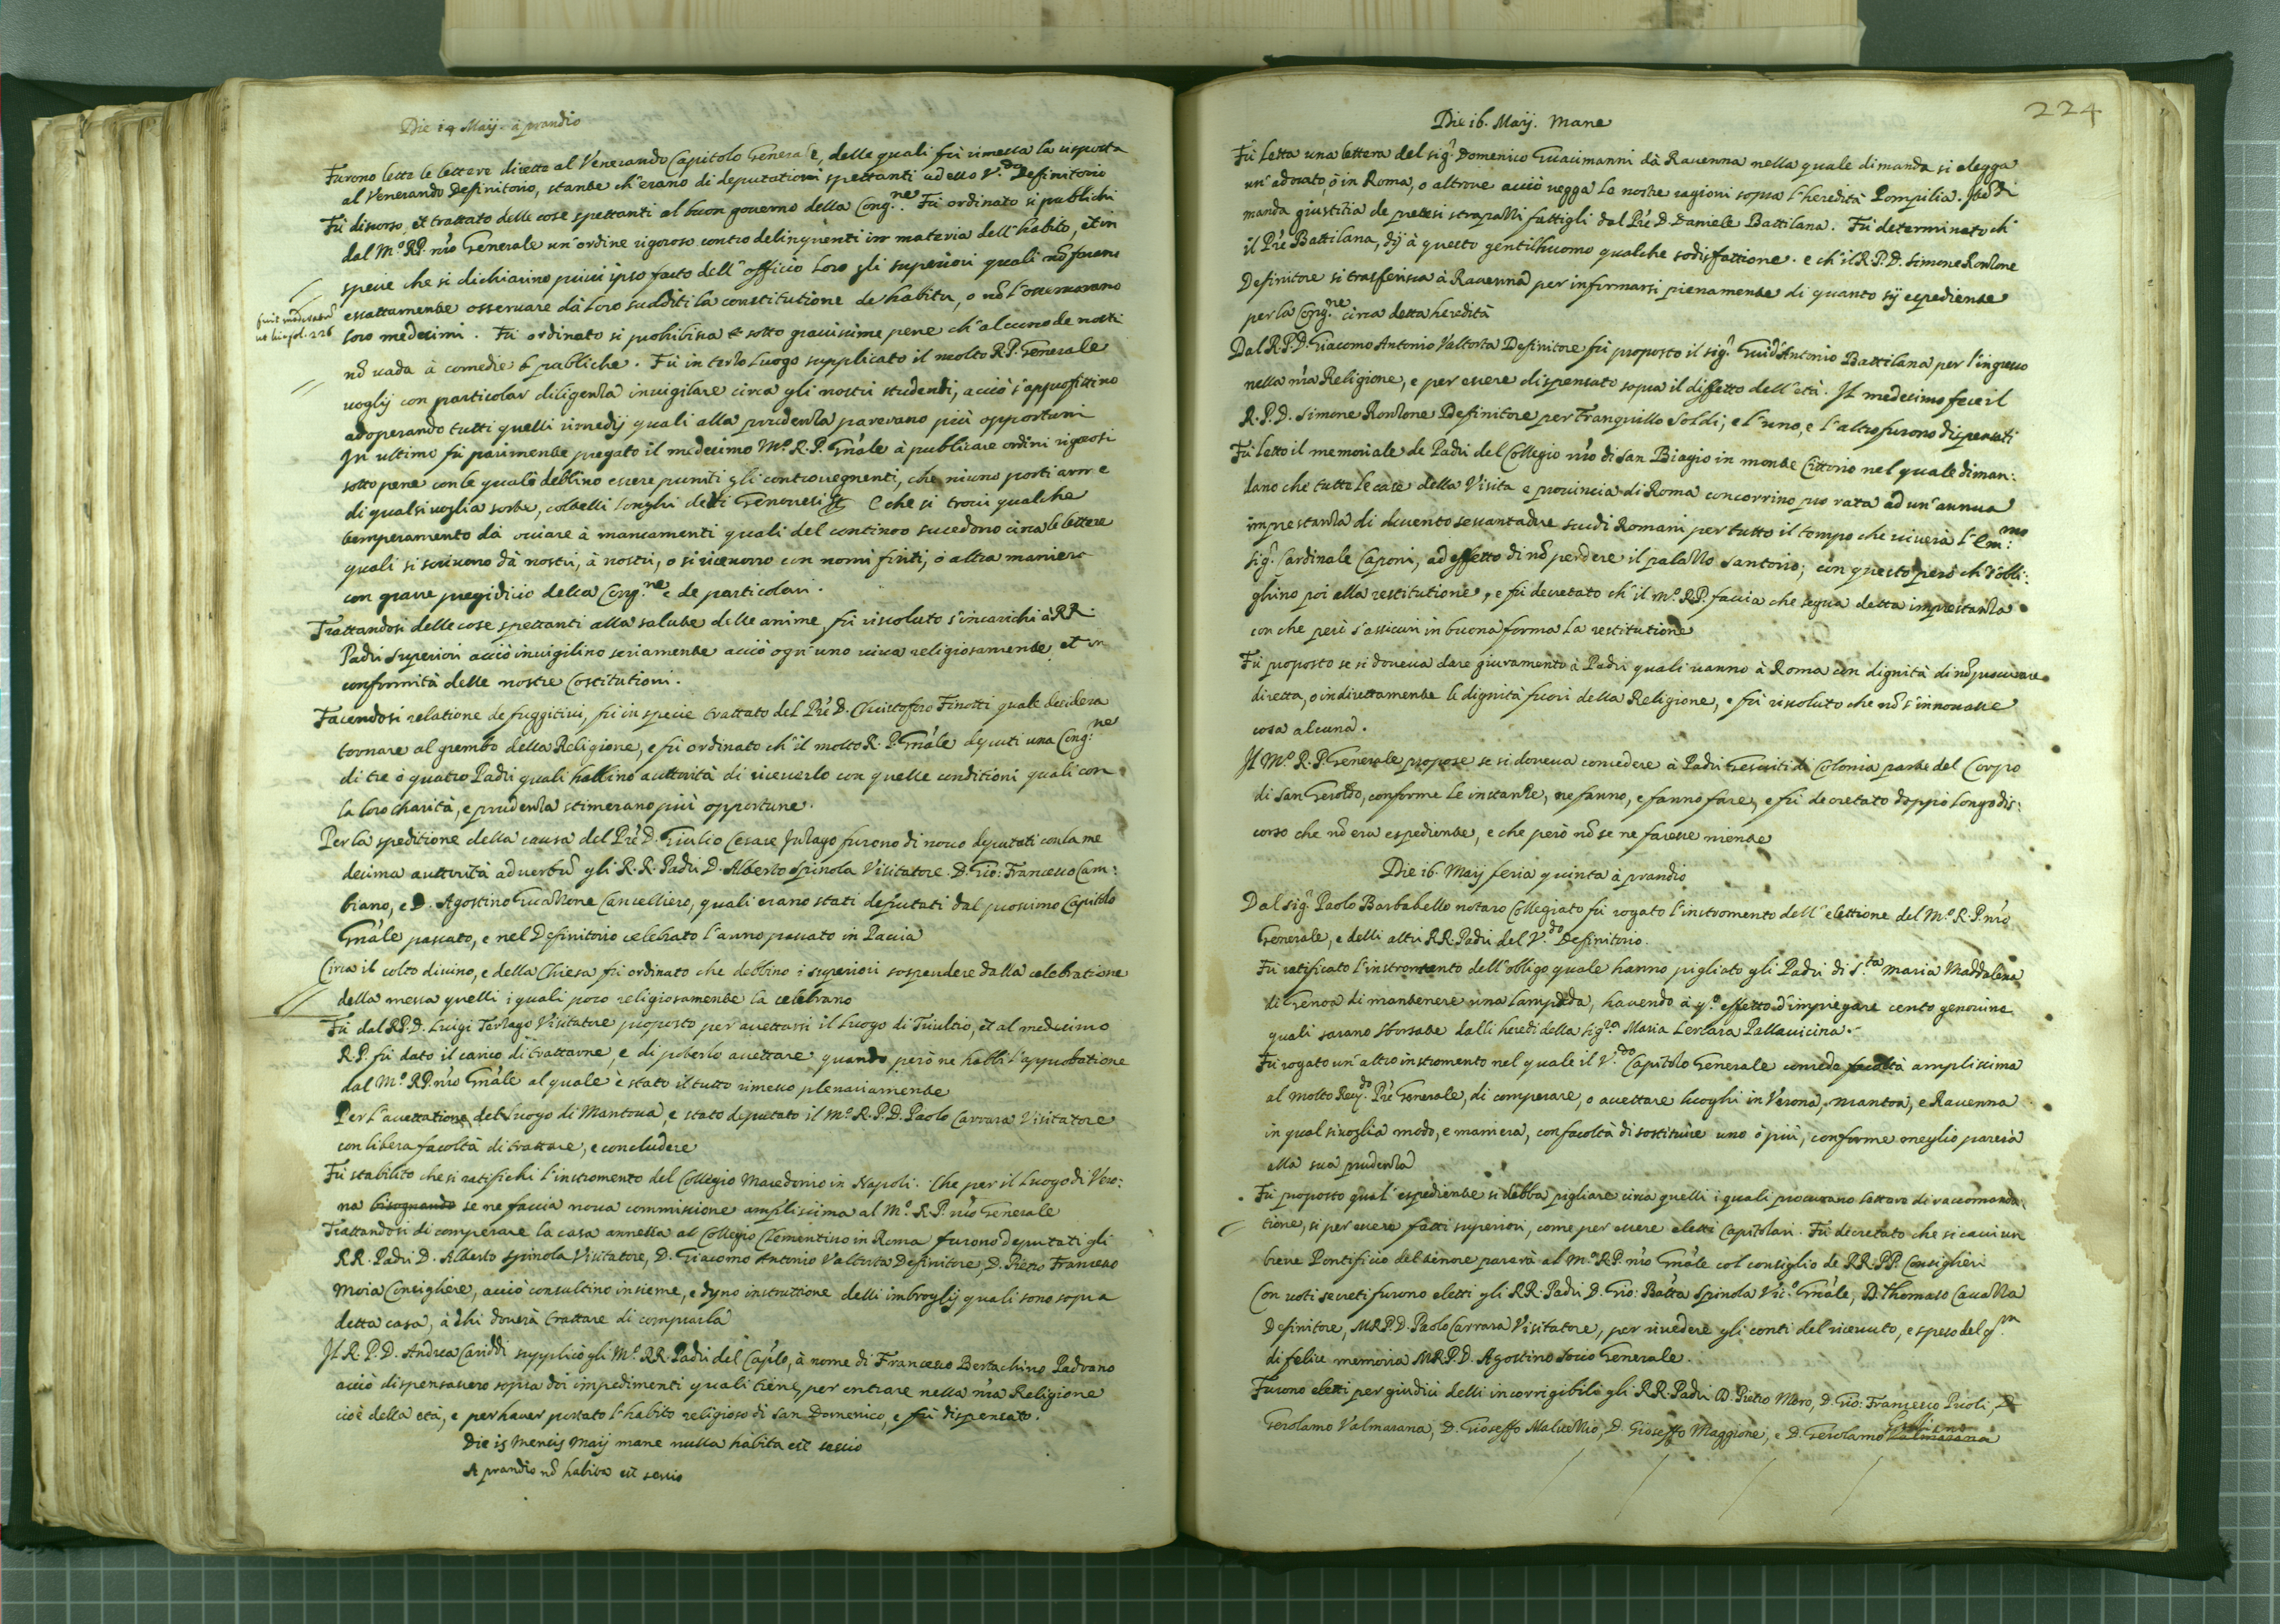 Die 14 Maij à prandio
Furono lette le lettere dirette al Venerando Capitolo Generale, delle quali fù rimessa la risposta
al Venerando Definitorio, stante ch'erano di deputationi spettanti ad esso V.do Definitorio
Fù discorso, et trattato delle cose spettanti al buon governo della Cong.ne. Fù ordinato si publichi
dal M.o R.P. nro Generale un'ordine rigoroso contro delinquenti in materia dell'habito, et in
specie che si dichiarino privi ipso facto dell'officio loro gli superiori quali nõ farano
essattamente osservare dà loro sudditi la constitutione de habitu, o nõ l'osservarano
fol. 226
loro medesimi. Fù ordinato si prohibisca sotto gravissime pene ch'alcuno de nostri
nõ vada à comedie publiche. Fù in terzo luogo supplicato il molto R.P. Generale
voglij con particolar diligenza invigilare circa gli nostri studenti, acciò s'approfittino
adoperando tutti quelli rimedij quali alla prudenza parerano più opportuni
In ultimo fù parimente pregato il medesimo M.o R.P. Gñale à publicare ordini rigorosi
sotto pene con le quale debbino essere puniti gli controvegnenti, che niuno porti arme
di qualsivoglia sorte, coltelli longhi detti Genovesi E che si trovi qualche
temperamento dà oviare à mancamenti quali del continoo sucedono circa le lettere
quali si scrivono dà nostri, à nostri, o si ricevono con nomi finti, ò altra maniera
con grave pregidicio della Cong.ne e de particolari.
Trattandosi delle cose spettanti alla salute delle anime fù risoluto s'incarichi à RR.
Padri Superiori acciò invigilino seriamente acciò ogn'uno viva religiosamente, et in
conformità delle nostre Costitutioni.
Facendosi relatione de fuggitivi, fù in specie trattato del Prè D. Christoforo Finotti quale desidera
tornare al grembo della Religione, e fù ordinato ch'il molto R. P. Gñale deputi una Cong.ne
di tre ò quatro Padri quali habbino auttorità di riceverlo con quelle conditioni quali con
la loro charità, e prudenza stimerano più opportune.
Per la speditione della causa del Prè D. Giulio Cesare furono di novo deputati con la me
desima auttorità ad vertũ gli R.R. Padri D. Alberto Spinola Visitatore. D. Gio: Francesco Cam:
biano, e D. Agostino Guazzone Cancelliero, quali erano stati deputati dal prossimo Capitolo
Gñale passato, e nel Definitorio celebrato l'anno passato in Pavia
Circa il colto divino, e della Chiesa fù ordinato che debbino i superiori sospendere dalla celebratione
della messa quelli i quali poco religiosamente la celebrano
Fù dal R.P.D. Luigi Terzago Visitatore proposto per accettarsi il luogo di Trivultio, et al medesimo
R.P. fù dato il carico di trattarne, e di poterlo accettare quando però ne habbi l'approbatione
dal M.o R.P. nro Gñale al quale è stato il tutto rimesso plenariamente
Per l'accettatione del luogo di Mantova, è stato deputato il M.o R.P.D. Paolo Carrara Visitatore
con libera facoltà di trattare, e concludere
Fù stabilito che si ratifichi l'instromento del Collegio Macedonio in Napoli. Che per il luogo di Vero:
na bisognando se ne faccia nova commissione amplissima al M.o R.P. nro Generale
Trattandosi di comperare la casa annessa al Collegio Clementino in Roma furono deputati gli
RR. Padri D. Alberto Spinola Visitatore, D. Giacomo Antonio Valtorta Definitore, D. Pietro Francesco
Moia Consigliere, acciò consultino insieme, e dijno instruttione delli imbroglij quali sono sopra
detta casa, à chi doverà trattare di comprarla
Il R.P.D. Andrea Cariddi supplicò gli M.o RR. Padri del Caplo, à nome di Francesco Bertachino Padoano
acciò dispensassero sopra doi impedimenti quali tiene, per entrare nella nra Religione
cioè della età, e per haver portato l'habito religioso di San Domenico, e fù dispensato.
Die 15 Mensis Maij mane nulla habita est sessio
A prandio nõ habita est sessio
224
Die 16. Maij. Mane
Fù letta una lettera del sig.r Domenico Guaimanni dà Ravenna nella quale dimanda si elegga
un'advocato, ò in Roma, o altrove acciò vegga le nostre ragioni sopra l'heredità Pompilia.
manda giustitia de pretesi strapazzi fattigli dal Prè D. Daniele Battilana. Fù determinato ch'
il Prè Battilana, dij à questo gentilhuomo qualche sodisfattione. e ch'il R.P.D. Simone Ronzone
Definitore si trasferisca à Ravenna per informarsi pienamente di quanto sij espediente
per la Cong.ne circa detta heredità
Dal R.P.D. Giacomo Antonio Valtorta Definitore fù proposto il sig.r Guid'Antonio Battilana per l'ingresso
nella nra Religione, e per essere dispensato sopra il diffetto dell'età. Il medesimo fece il
R.P.D. Simone Ronzone Definitore per Tranquillo Soldi, e l'uno, e l'altro furono dispensati
Fù letto il memoriale de Padri del Collegio nro di San Biagio in monte Cittorio nel quale diman:
dano che tutte le case della Visita e provincia di Roma concorrino pro rata ad un'annua
imprestanza di ducento sessantadue scudi Romani per tutto il tempo che viverà l'Em.mo
sig.r Cardinale Caponi, ad effetto di nõ perdere il palazzo Santorio; con questo però ch's'obli:
ghino poi alla restitutione, e fù decretato ch'il M.o R.P. faccia che segua detta imprestanza
con che però s'assicuri in buona forma la restitutione
Fù proposto se si doveva dare giuramento à Padri quali vanno à Roma con dignità di nõ procurare
diretta, o indirettamente le dignità fuori della Religione, e fù risoluto che nõ s'innovasse
cosa alcuna.
Il M.o R.P. Generale propose se si doveva concedere à Padri Gesuiti di Colonia parte del Corpo
di San Geroldo, conforme le instanze, ne fanno, e fanno fare, e fù decretato doppo longo dis:
corso che nõ era espediente, e che però nõ se ne facesse niente
Die 16. Maij feria quinta à prandio
Dal sig.r Paolo Barbabello notaro Collegiato fù rogato l'instromento dell'elettione del M.o R.P. nro
Generale, e delli altri RR. Padri del V.do Definitorio.
Fù ratificato l'instromento dell'obligo quale hanno pigliato gli Padri di S.ta Maria Maddalena
di Genoa di mantenere una lampada, havendo à q.o effetto d'impregare cento genovine
quali sarano sborsate dalli heredi della Sig.ra Maria Lercara Pallavicina.
Fù rogato un'altro instromento nel quale il V.do Capitolo Generale concede facoltà amplissima
al molto Rev.do Prè Generale, di comperare, o accettare luoghi in Verona, Mantoa, e Ravenna
in qual sivoglia modo, e maniera, con facoltà di sostituire uno ò più, conforme meglio parerà
alla sua prudenza
Fù proposto qual'espediente si debba pigliare circa quelli i quali procurano lettere di raccomanda:
tione, si per essere fatti superiori, come per essere eletti Capitolari. Fù decretato che si cavi un
breve Pontificio del tenore parerà al M.o R.P. nro Gñale col consiglio de RR.PP. Consiglieri
Con voti secreti furono eletti gli RR. Padri D. Gio: Batta Spinola Vic.o Gñale, D. Thomaso Cavazza
Definitore, M.R.P.D. Paolo Carrara Visitatore, per rivedere gli conti del ricevuto, e speso del q.m
di felice memoria M.R.P.D. Agostino Socio Generale.
Furono eletti per giudici delli incorrigibili gli RR. Padri D. Pietro Moro, D. Gio: Francesco Prioli, D.
Gerolamo Valmarana, D. Gioseffo Maluezzio, D. Gioseffo Maggione, e D. Gerolamo Valmarana